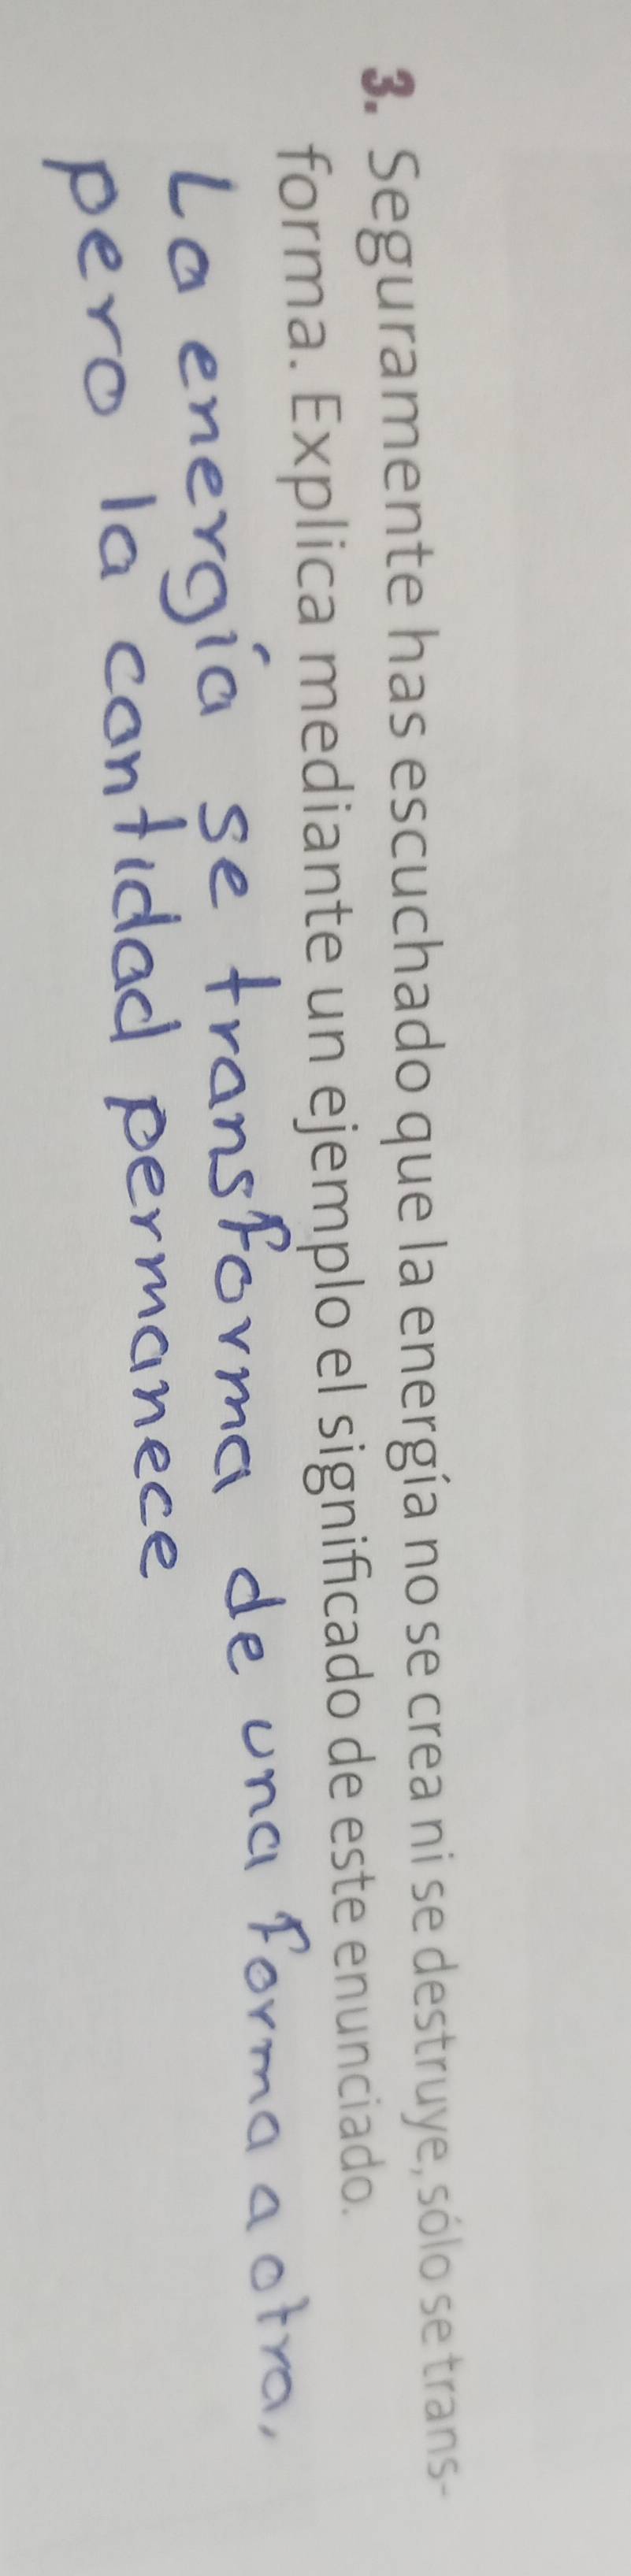 3. Seguramente has escuchado que la energía no se crea ni se destruye, sólo se trans-
forma. Explica mediante un ejemplo el significado de este enunciado.
La energía se transforma de una forma a otra,
pero la cantidad permanece